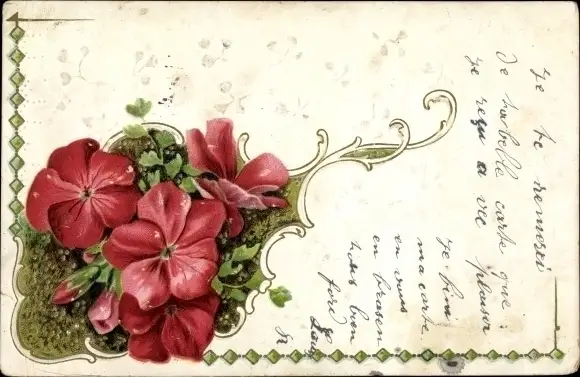 je te remerci
de ta belle carte que
je reçu a vec plaisir
je fini
ma carte
en vous
en brasen
tous bien
ford